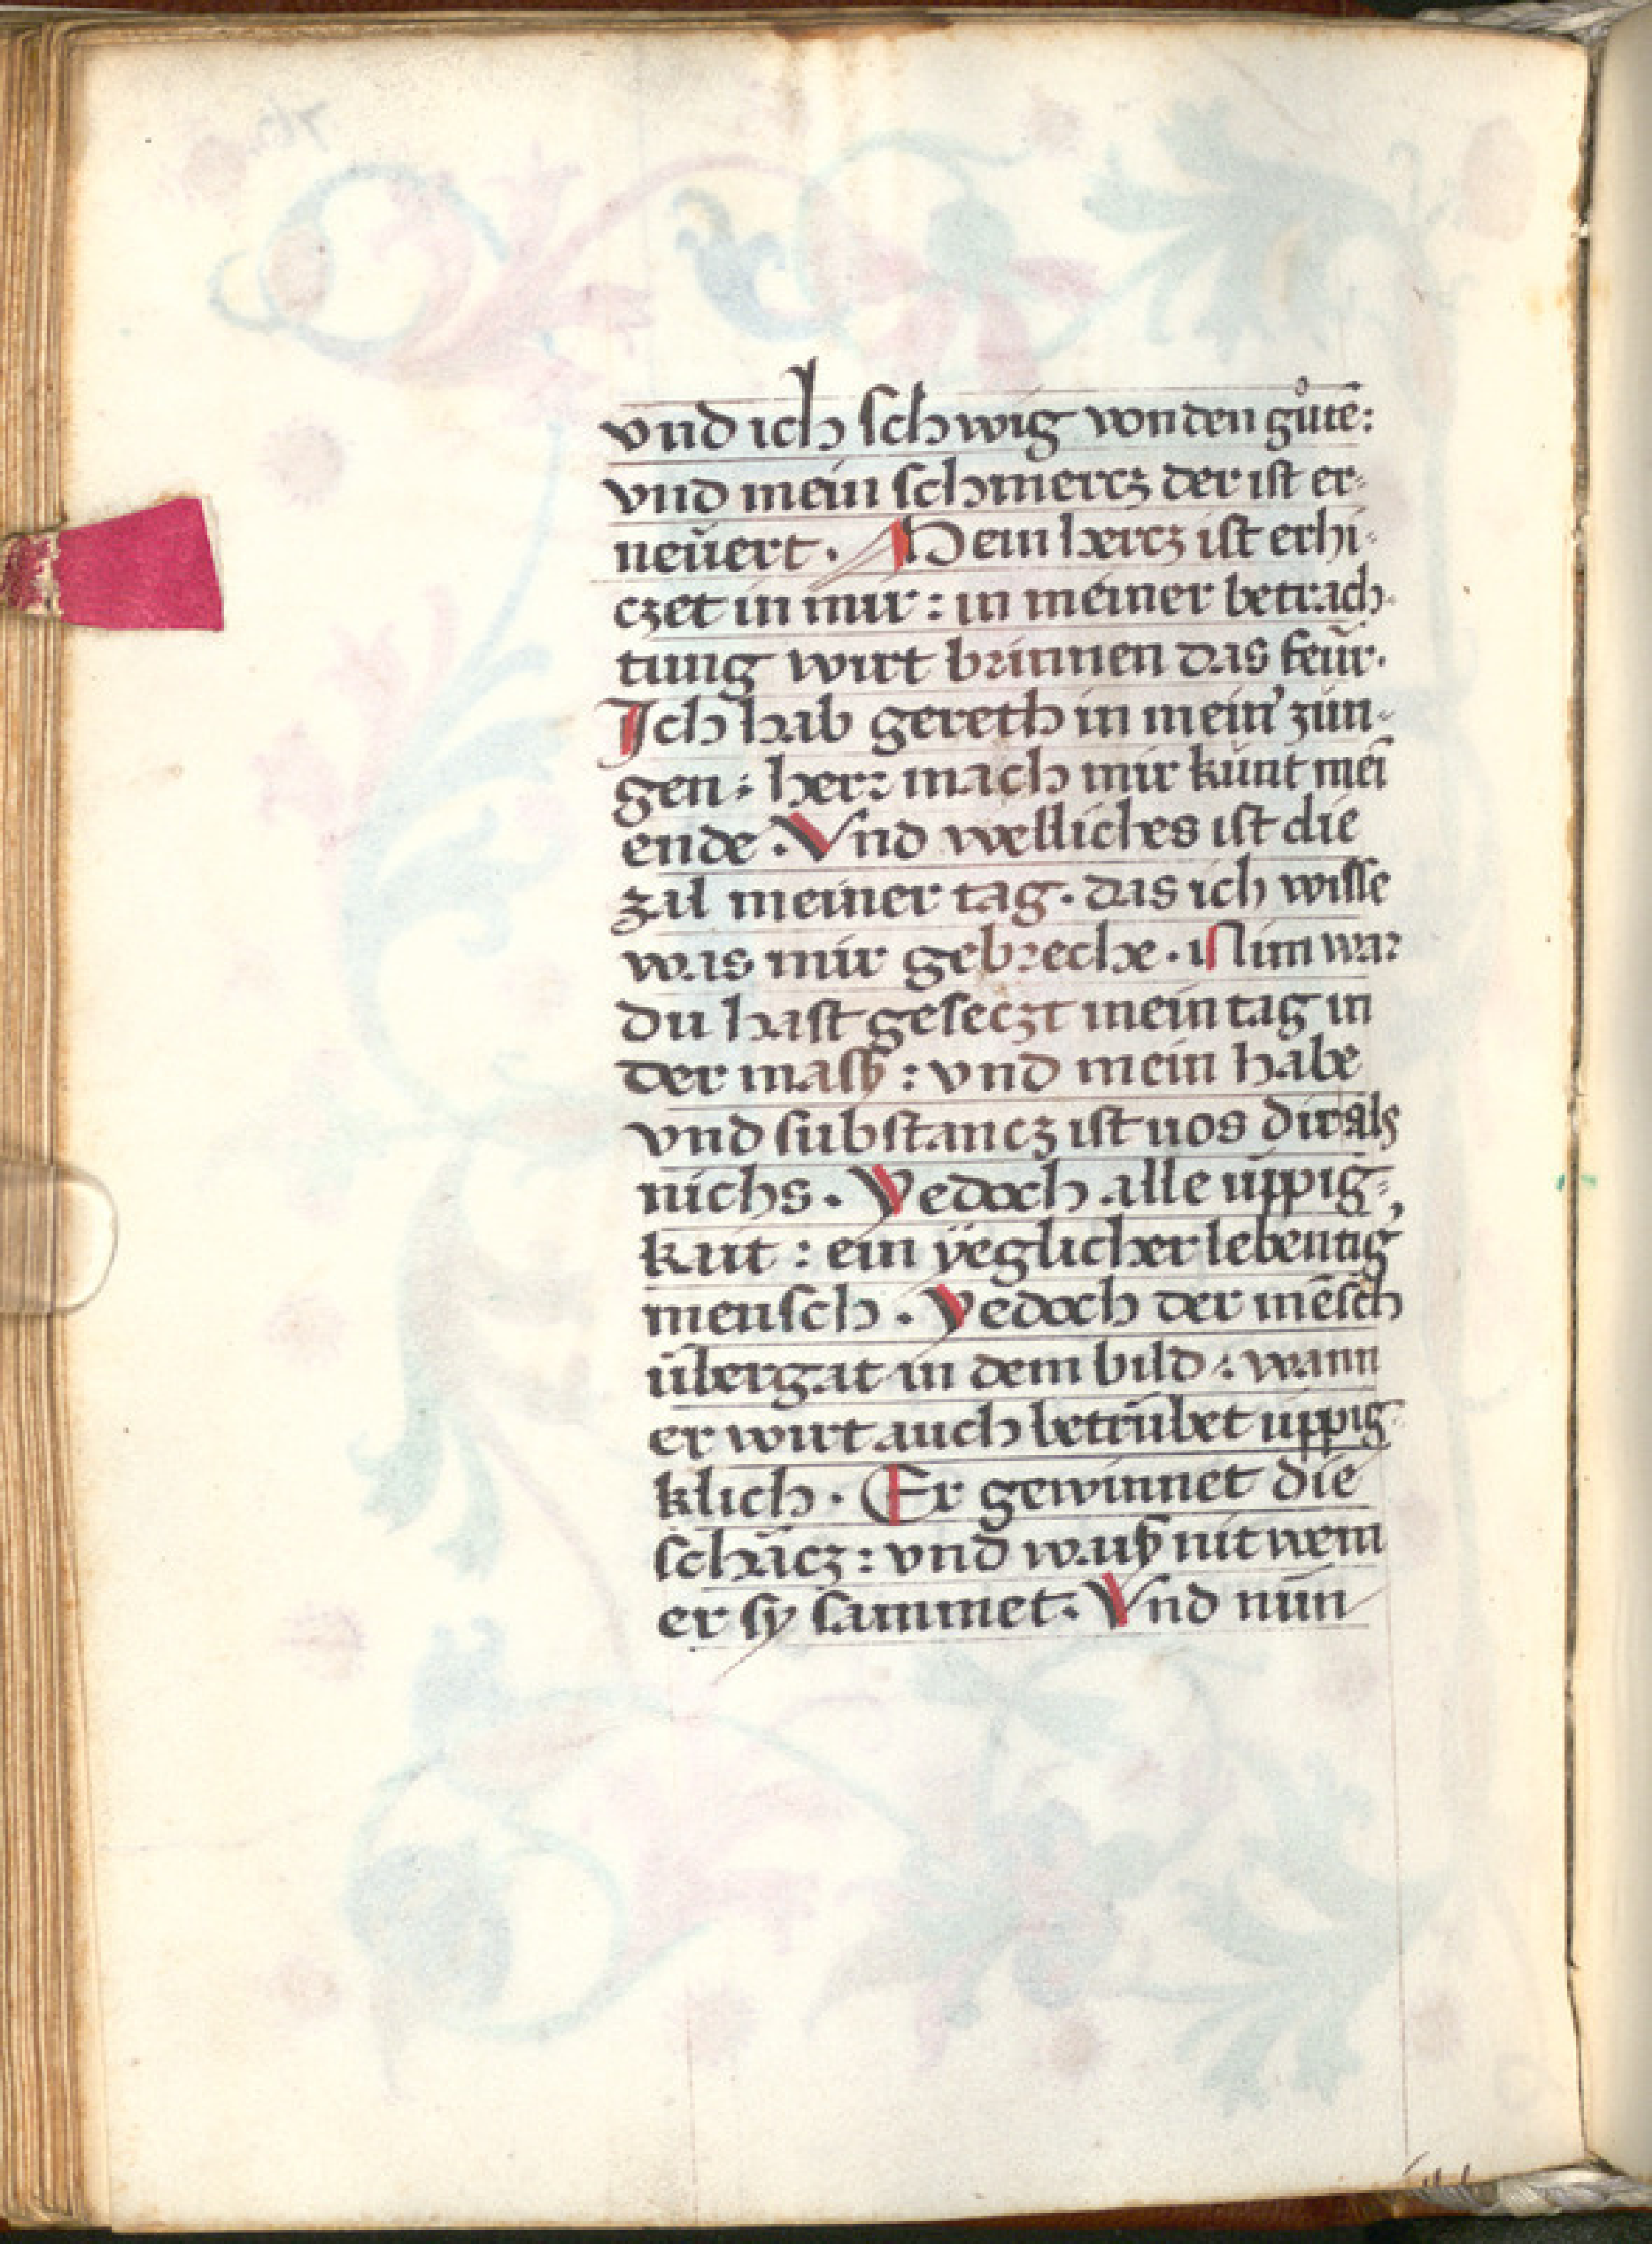 vnd ich schwig von den gůtē:
vnd mein schmercz der ist er-
neũert. Mein hercz ist erhi-
czet in mir: in meiner betrach-
tung wirt brinnen das feũr.
Ich hab gereth in mein’ zun-
gen: herr mach mir kunt mei
ende. Vnd welliches ist die
zal meiner tag. das ich wisse
was mir gebreche. Nim war
du hast geseczt mein tag in
der masß: vnd mein habe
vnd substancz ist uor dir als
nichs. Yedoch alle üppig-
kait: ein ÿeglicher lebentig
mensch. Yedoch der mēsch
übergat in dem bild: wann
er wirt auch betrübet üppig-
klich. Er gewinnet die
schäcz: vnd waiß nit wem
er sy sammet. Vnd nun